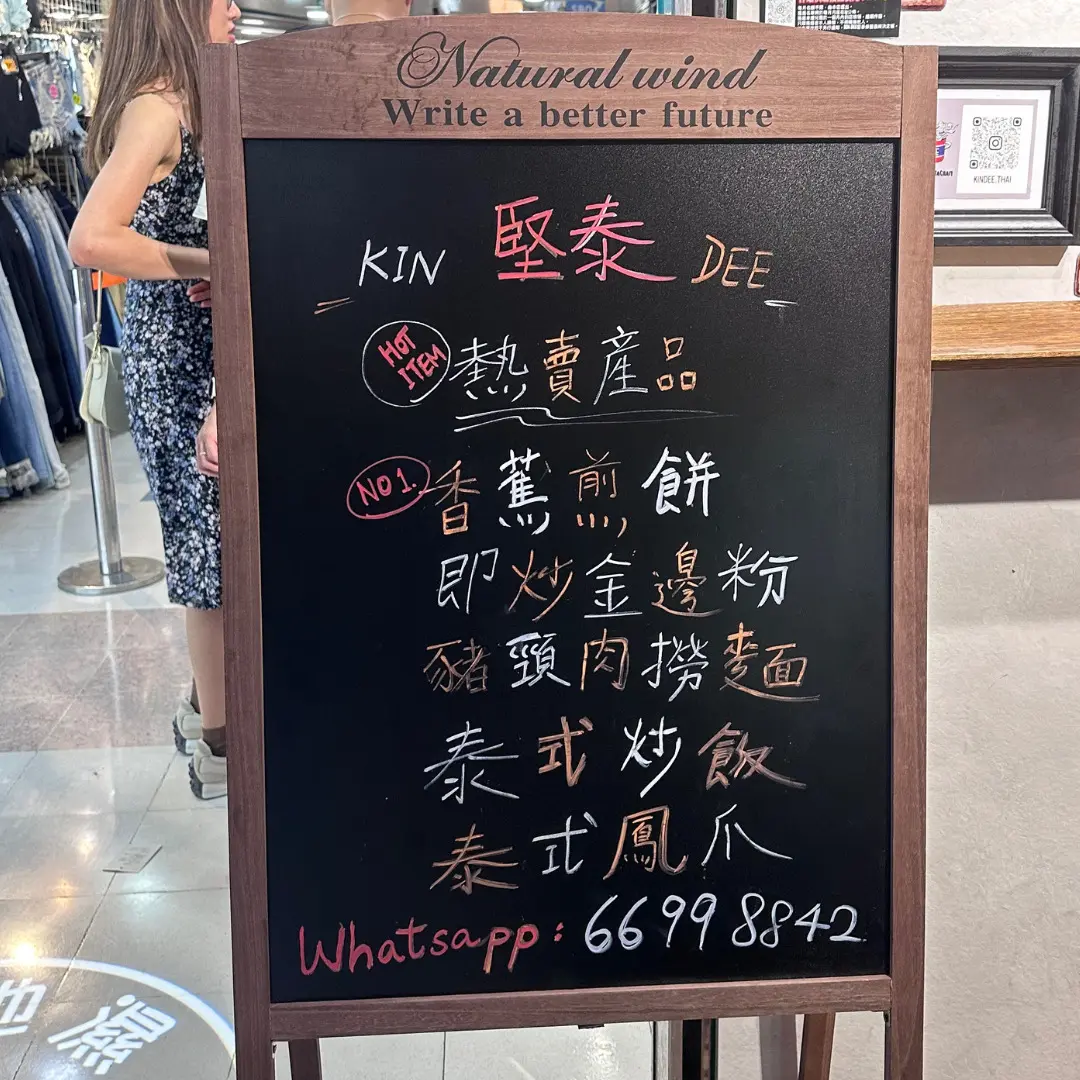 Natural wind
Write a better future
KIN 堅泰 DEE
HOT ITEM 熱賣產品
NO 1. 香蕉煎餅
即炒金邊粉
豬頸肉撈麵
泰式炒飯
泰式鳳爪
Whatsapp: 6699 8842
KINDEE.THAI
地濕